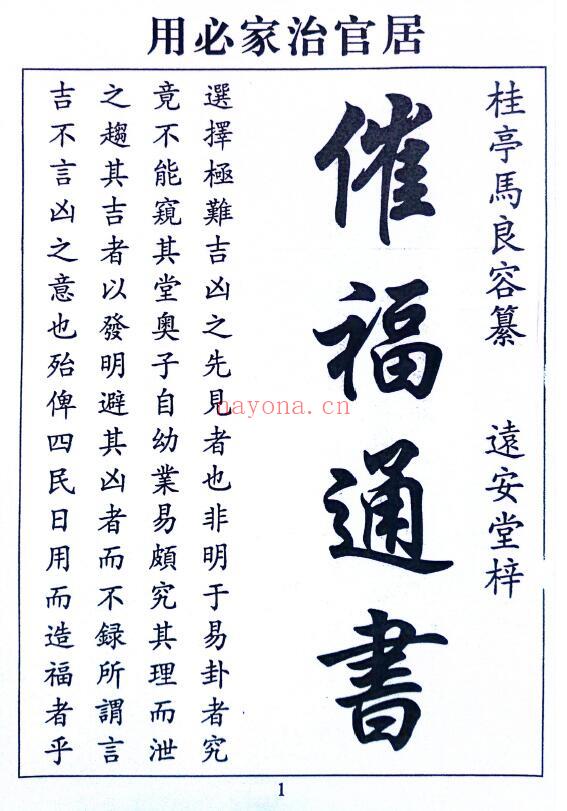 居官治家必用
桂亭馬良容纂　遠安堂梓
催福通書
選擇極難吉凶之先見者也非明于易卦者究
竟不能窺其堂奧子自幼業易頗究其理而泄
之趨其吉者以發明避其凶者而不録所謂言
吉不言凶之意也殆俾四民日用而造福者乎
nayona.cn
1